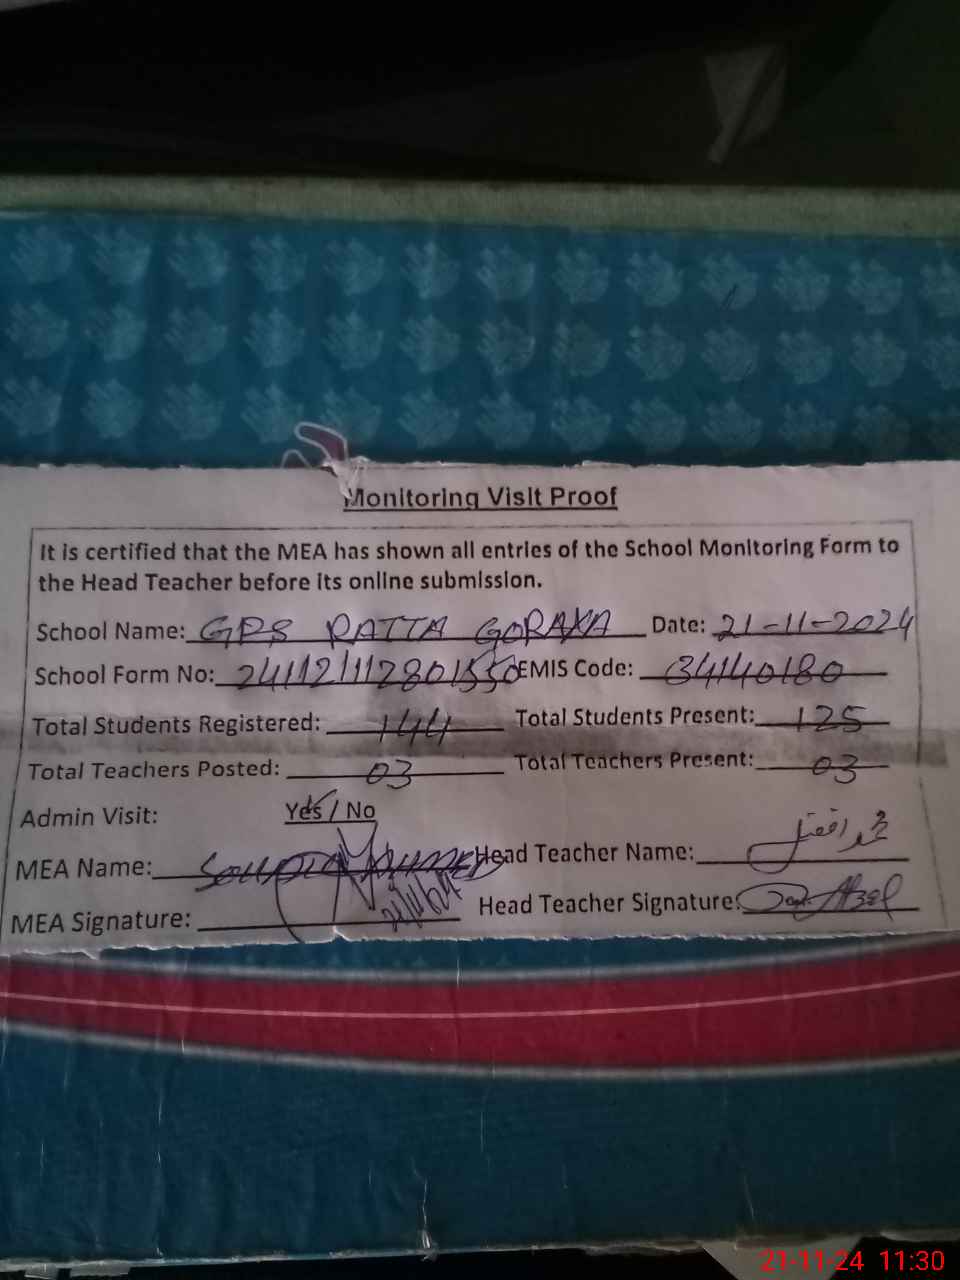 Monitoring Visit Proof
It is certified that the MEA has shown all entries of the School Monitoring Form to
the Head Teacher before its online submission.
School Name: GPS RATTA GORAXA Date: 21-11-2024
School Form No: EMIS Code: 34140180
Total Students Registered: 144 Total Students Present: 125
Total Teachers Posted: 03 Total Teachers Present: 03
Admin Visit: Yes / No
MEA Name: Head Teacher Name: محمد افضل
MEA Signature: 21/11/24 Head Teacher Signature: Afzal
21-11-24 11:30